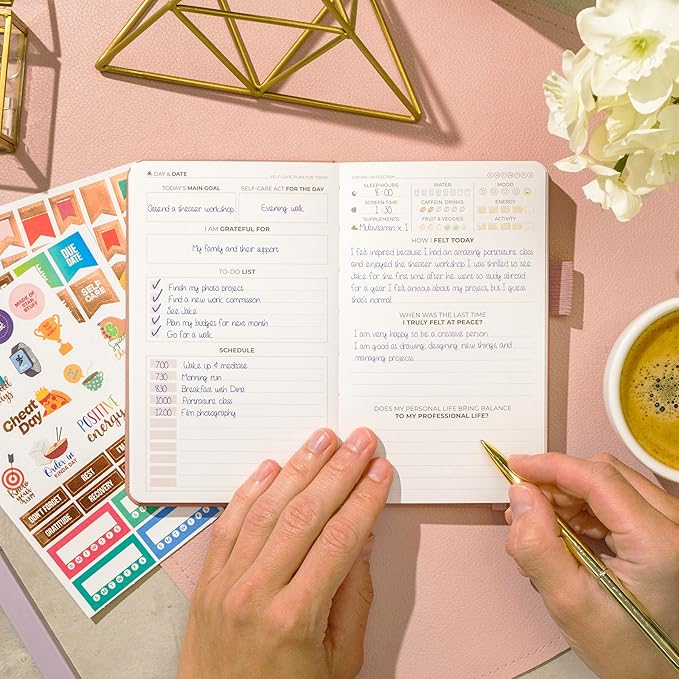 DAY & DATE
SELF-CARE PLAN FOR TODAY
TODAY'S MAIN GOAL
SELF-CARE ACT FOR THE DAY
Attend a theater workshop
Evening walk
I AM GRATEFUL FOR
My family and their support
TO-DO LIST
Finish my photo project
Find a new work commission
See Jake
Plan my budges for next month
Go for a walk
SCHEDULE
7:00 Wake up & medicate
7:30 Morning run
8:30 Breakfast with Dina
10:00 Portraiture class
12:00 Film photography
EVENING REFLECTION
SLEEP HOURS
8 : 00
SCREEN TIME
1 : 30
SUPPLEMENTS
Multivitamin x 1
WATER
CAFFEIN. DRINKS
FRUIT & VEGGIES
MOOD
ENERGY
ACTIVITY
HOW I FELT TODAY
I felt inspired because I had an amazing portraiture class
and enjoyed the theater workshop. I was thrilled to see
Jake for the first time after he went to study abroad
for a year. I felt anxious about my project, but I guess
that's normal.
WHEN WAS THE LAST TIME
I TRULY FELT AT PEACE?
I am very happy to be a creative person.
I am good at drawing, designing new things, and
managing projects
DOES MY PERSONAL LIFE BRING BALANCE
TO MY PROFESSIONAL LIFE?
DUE
DATE
SELF
CARE
MADE OF
STAR
STUFF
Cheat
Day
POSITIVE
energy
Order in
KINDA DAY
Know
your
why
DON'T FORGET
REST
GRATITUDE
RECOVERY
S M T W T F S
S M T W T F S
S M T W T F S